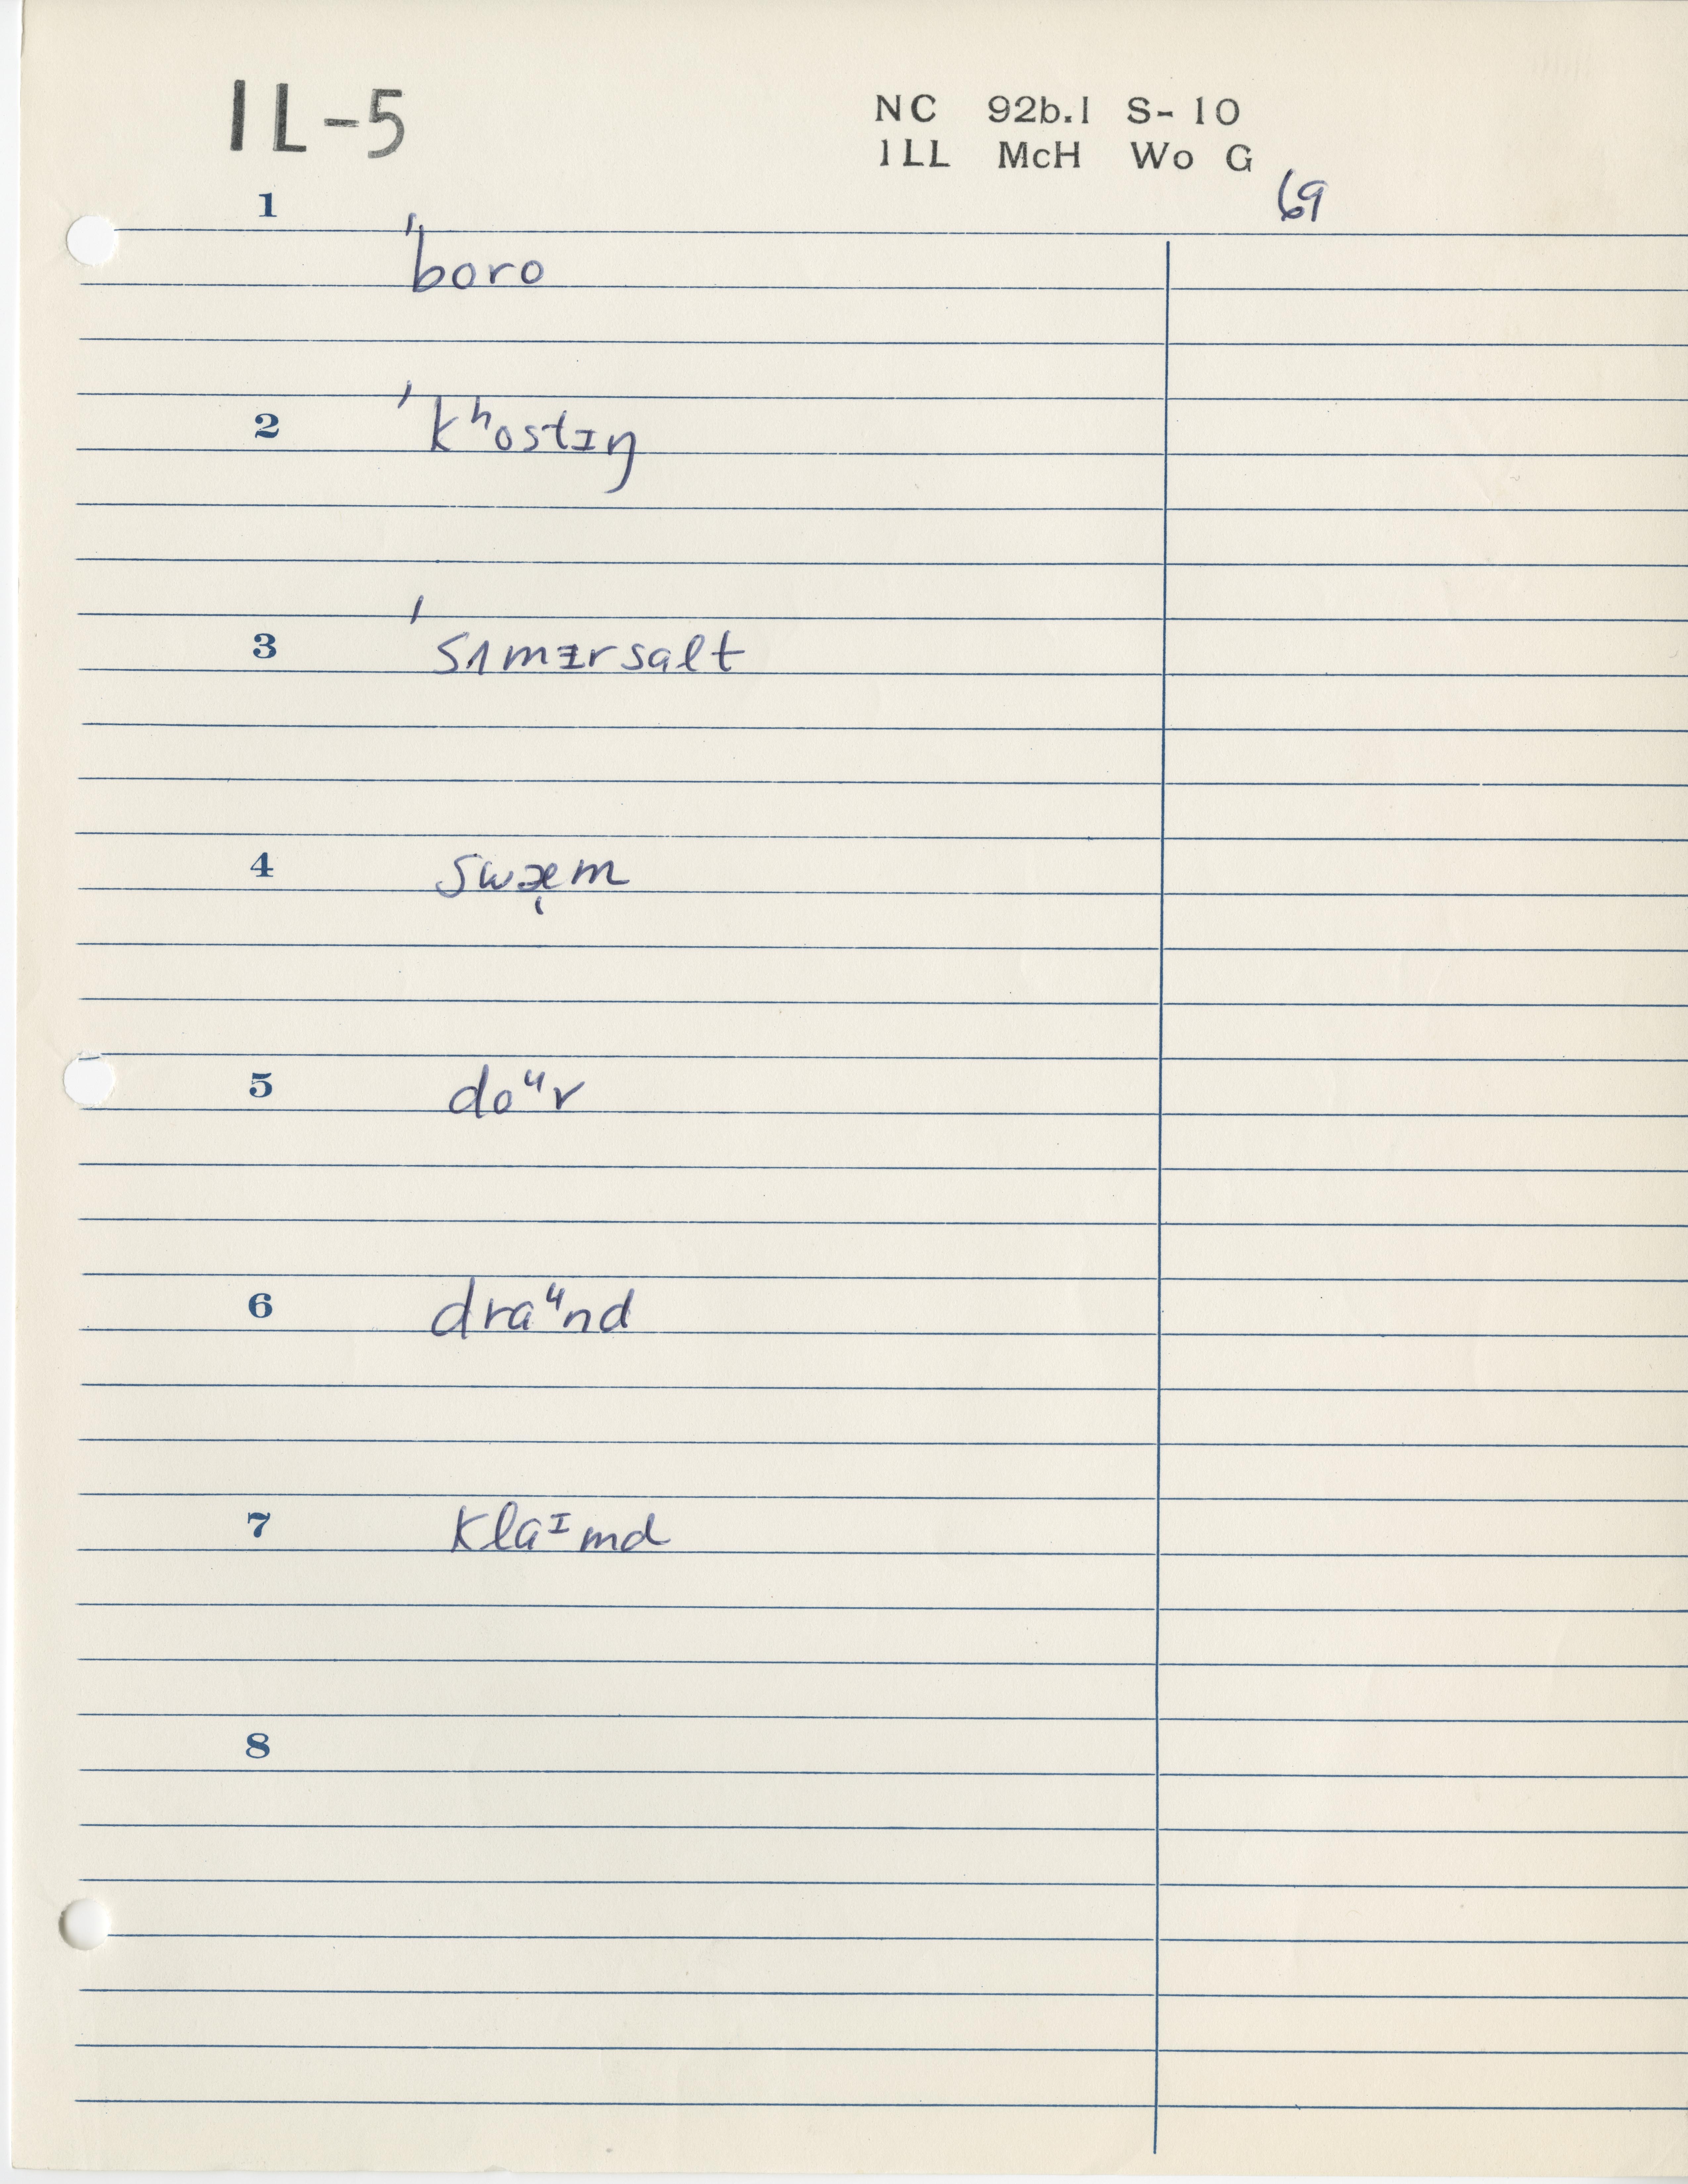 IL-5
NC 92b.1 S-10
ILL McH Wo G
69
1
ˈboro
2
ˈkʰostɪŋ
3
ˈsʌmɪrsalt
4
swæ̨m
5
doᶸr
6
draᶸnd
7
klaᶦmd
8